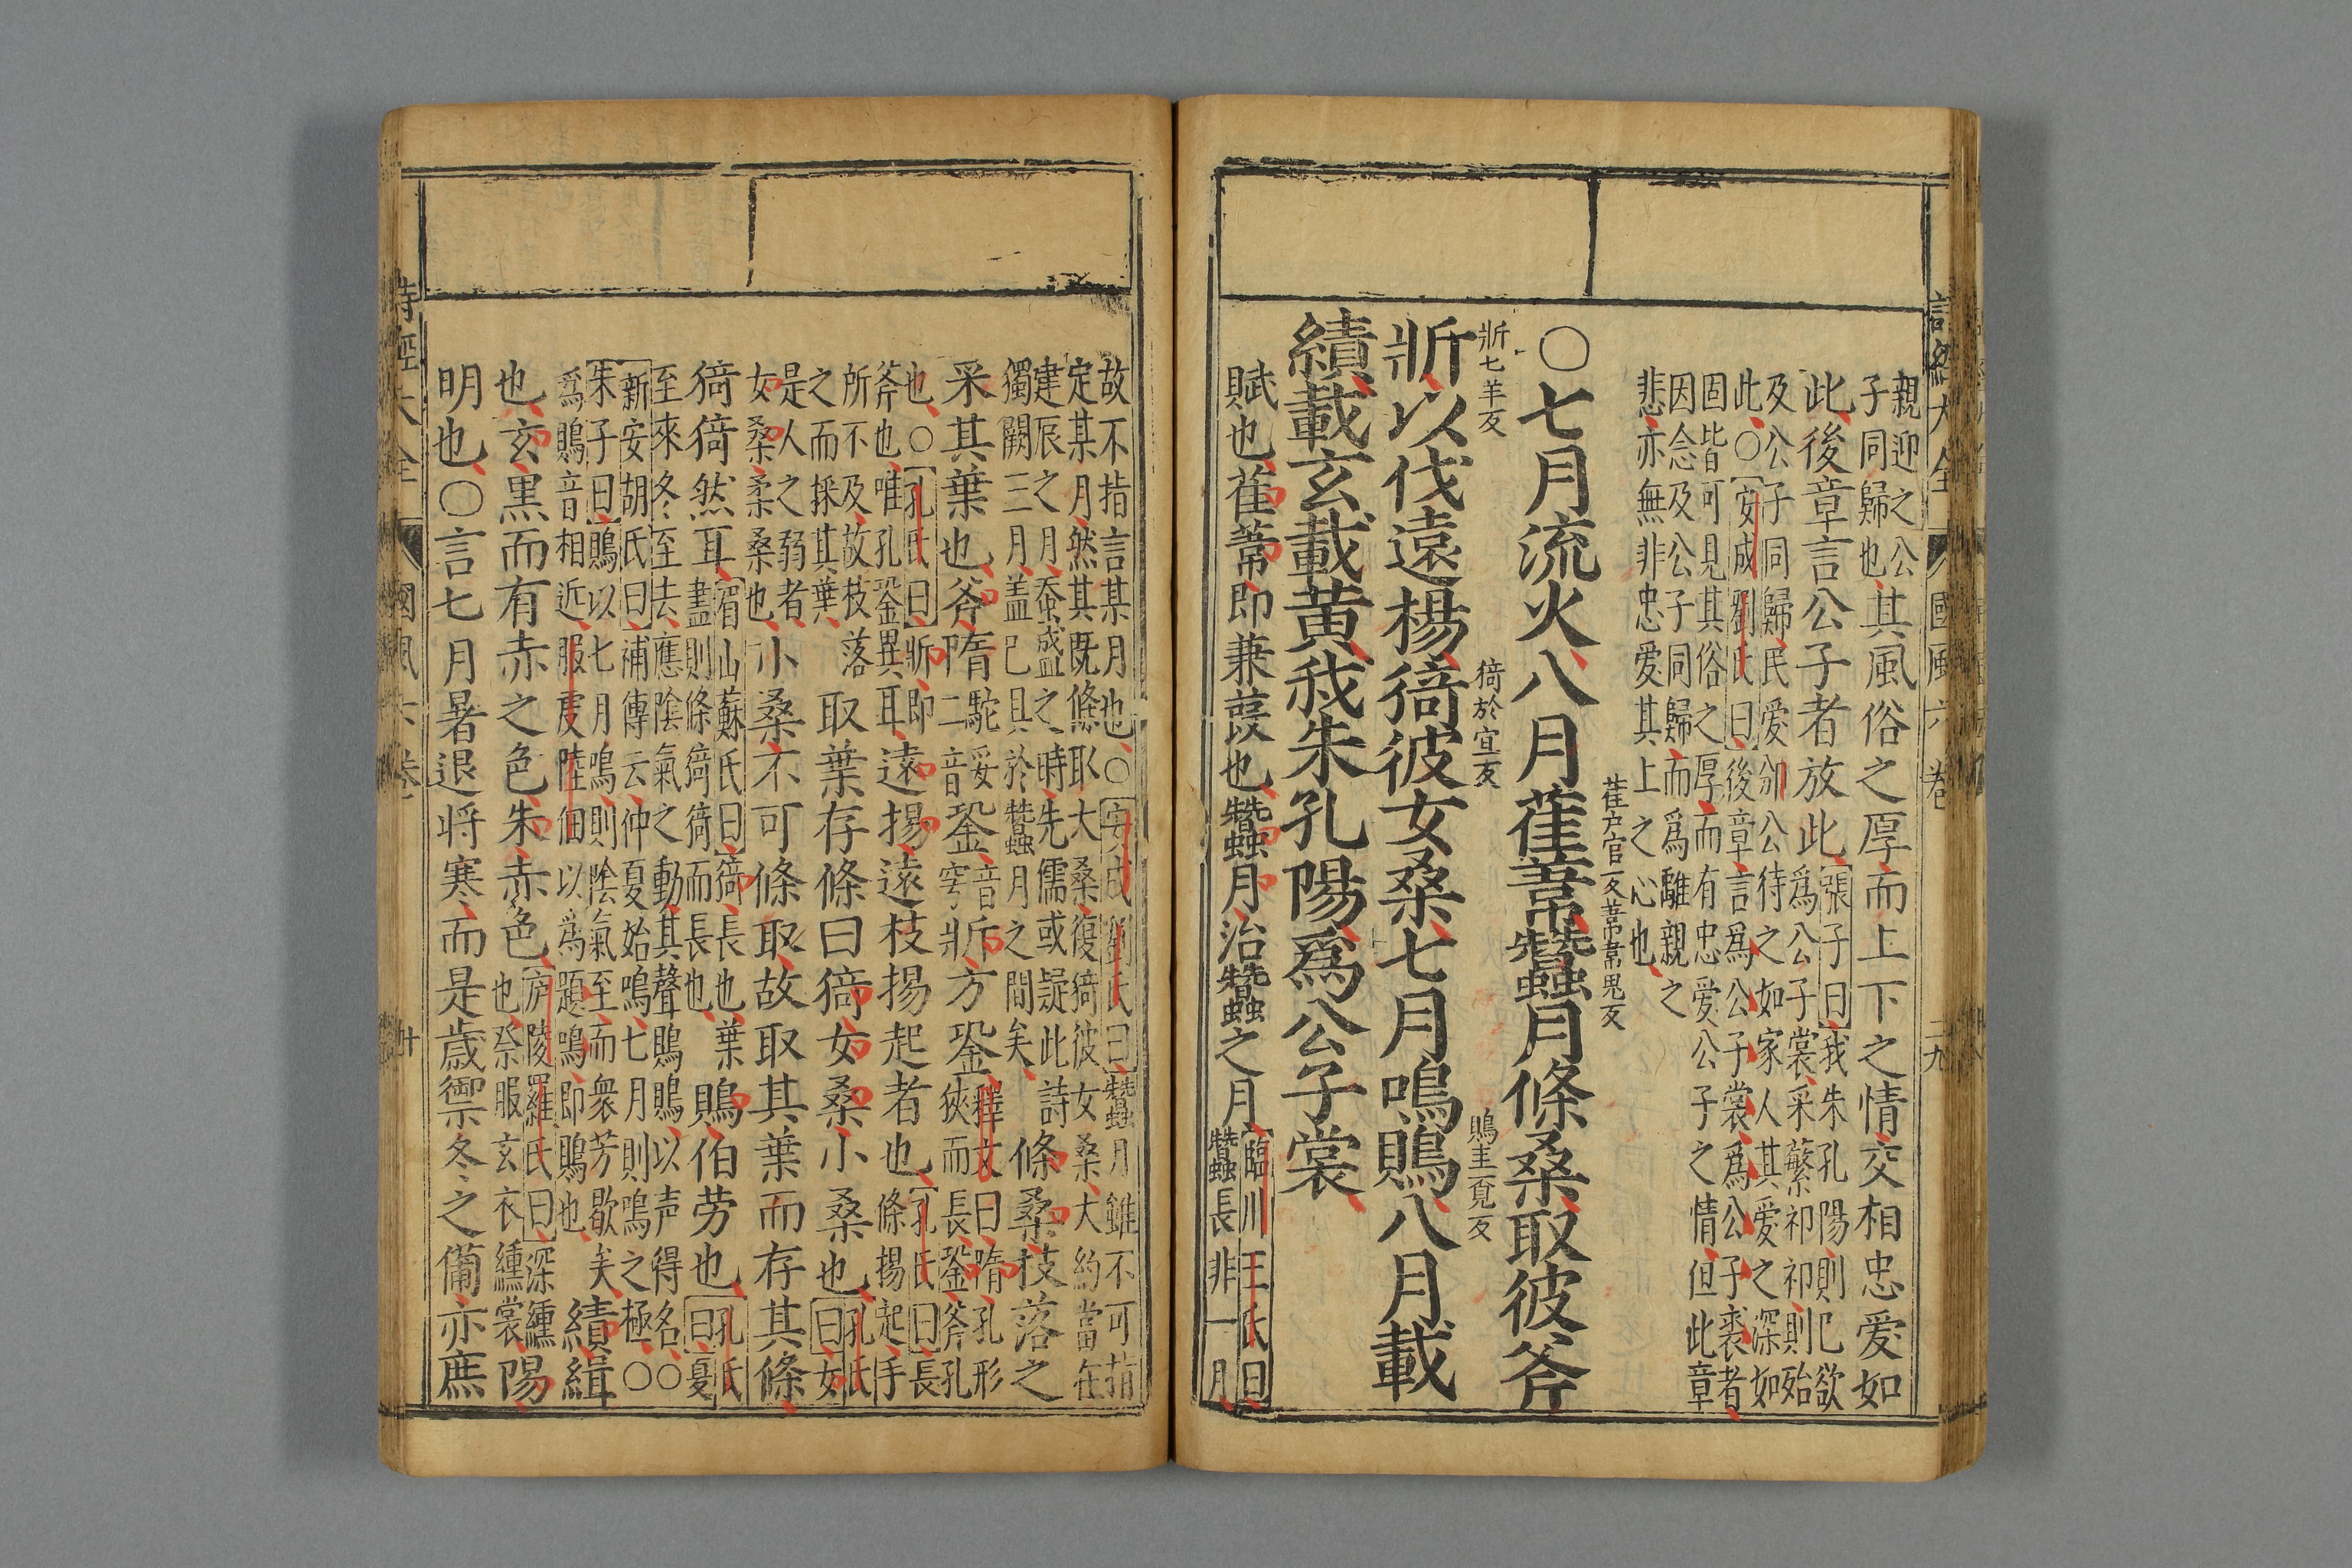 詩經大全 國風六卷 二九
親迎之公
子同歸也
其風俗之厚而上下之情交相忠愛如
此後章言公子者放此
張子曰我朱孔陽則已欲
爲公子裳采蘩祁祁則殆
及公子同歸民愛邠公待之如家人其愛之深如
此○安成劉氏曰後章言爲公子裳爲公子裘者
固皆可見其俗之厚而有忠愛公子之情但此章
因念及公子同歸而爲離親之
悲亦無非忠愛其上之心也
○七月流火八月萑葦蠶月條桑取彼斧
萑戸官反葦韋鬼反
斨以伐遠楊猗彼女桑七月鳴鵙八月載
斨七羊反
猗於宜反
鵙圭覓反
績載玄載黄我朱孔陽爲公子裳
賦也萑葦即蒹葭也蠶月治蠶之月
臨川王氏曰
蠶長非一月
故不指言某月也○安成劉氏曰蠶月雖不可指
定某月然其既條取大桑復猗彼女桑大約當在
建辰之月蚕盛之時先儒或疑此詩
獨闕三月盖已具於蠶月之間矣
條桑枝落之
采其葉也斧隋
駝妥
二音
銎
音
穹
斨方銎
釋文曰隋孔形
狹而長銎斧孔
也○孔氏曰斨即
斧也唯孔銎異耳
遠揚遠枝揚起者也
孔氏曰長
條揚起手
所不及故枝落
之而採其葉
取葉存條曰猗女桑小桑也
孔氏
曰女
是人之弱者
女桑柔桑也
小桑不可條取故取其葉而存其條
猗猗然耳
眉山蘇氏曰猗長也葉
盡則條猗猗而長也
鵙伯劳也
孔氏
曰夏
至來冬至去應陰氣之動其聲鵙鵙以声得名○
新安胡氏曰補傳云仲夏始鳴七月則鳴之極○
朱子曰鵙以七月鳴則陰氣至而衆芳歇矣
爲鵙音相近服虔陸佃以爲題鳴即鵙也
績緝
也玄黒而有赤之色朱赤色
庐陵羅氏曰深纁
也祭服玄衣纁裳
陽
明也○言七月暑退将寒而是歳禦冬之備亦庶
詩經大全 國風六卷 卅